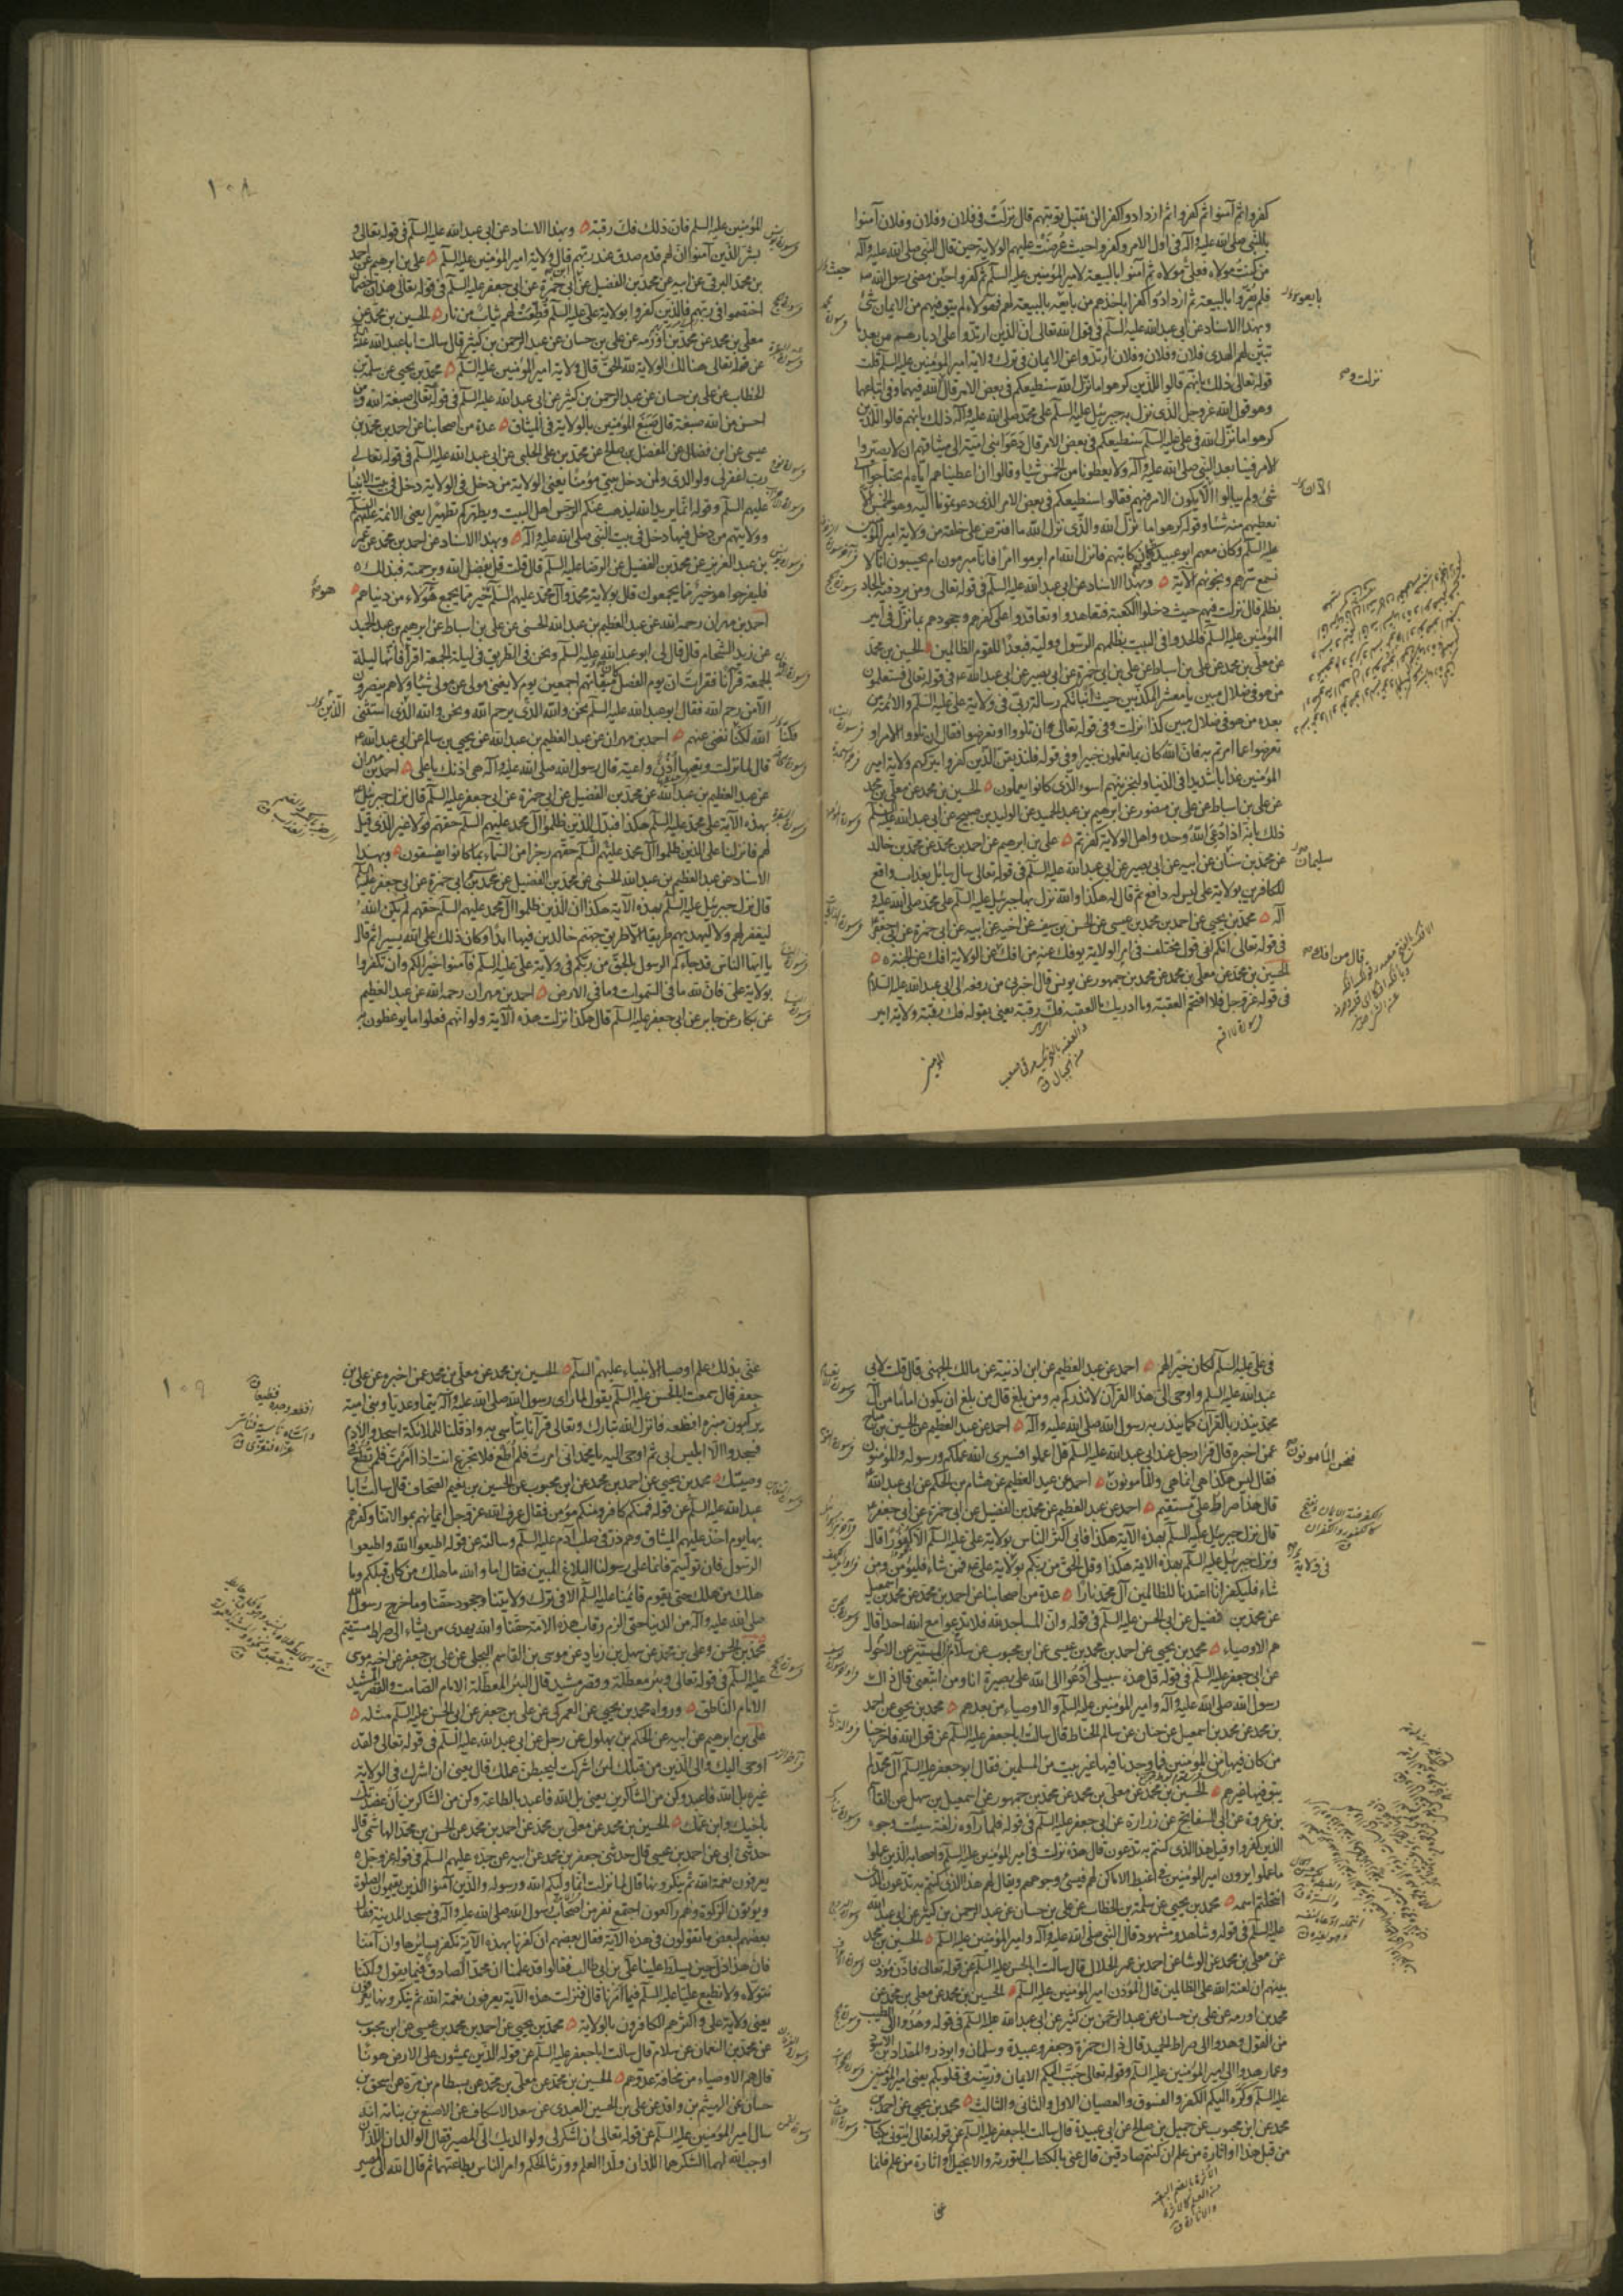 كفروا ثم آمنوا ثم كفروا ثم ازدادوا كفرا لن تقبل توبتهم قال نزلت في فلان وفلان وفلان آمنوا
بالنبي صلى الله عليه وآله في اول الامر وكفروا حيث عرضت عليهم الولاية حين قال النبي صلى الله عليه وآله
من كنت مولاه فعلي مولاه ثم آمنوا بالبيعة لامير المؤمنين عليه السلم ثم كفروا حين مضى رسول الله
فلم يقروا بالبيعة ثم ازدادوا كفرا باخذهم من بايعه بالبيعة لهم فهؤلاء لم يبق فيهم من الايمان شئ
وبهذا الاسناد عن ابي عبد الله عليه السلم في قول الله تعالى ان الذين ارتدوا على ادبارهم من بعد ما
تبين لهم الهدى فلان وفلان وفلان ارتدوا عن الايمان في ترك ولاية امير المؤمنين عليه السلم قلت
قوله تعالى ذلك بانهم قالوا للذين كرهوا ما نزل الله سنطيعكم في بعض الامر قال نزلت والله فيهما وفي اتباعهما
وهو قول الله عز وجل الذي نزل به جبرئيل عليه السلم على محمد صلى الله عليه وآله ذلك بانهم قالوا للذين
كرهوا ما نزل الله في علي عليه السلم سنطيعكم في بعض الامر قال دعوا بني امية الى ميثاقهم ان لا يصيروا
الامر فينا بعد النبي صلى الله عليه وآله ولا يعطونا من الخمس شيئا وقالوا ان اعطيناهم اياه لم يحتاجوا الى
شئ ولم يبالوا الا يكون الامر فيهم فقالوا سنطيعكم في بعض الامر الذي دعوتمونا اليه وهو الخمس الا
نعطيهم منه شيئا وقوله كرهوا ما نزل الله والذي نزل الله ما افترض على خلقه من ولاية امير المؤمنين
عليه السلم وكان معهم ابو عبيدة وكان كاتبهم فانزل الله ام ابرموا امرا فانا مبرمون ام يحسبون انا لا
نسمع سرهم ونجويهم الآية وبهذا الاسناد عن ابي عبد الله عليه السلم في قوله تعالى ومن يرد فيه بالحاد
بظلم قال نزلت فيهم حيث دخلوا الكعبة فتعاهدوا وتعاقدوا على كفرهم وجحودهم بما نزل في امير
المؤمنين عليه السلم فالحدوا في البيت بظلمهم الرسول ووليه فبعدا للقوم الظالمين الحسين بن محمد
عن معلى بن محمد عن علي بن اسباط عن علي بن ابي حمزة عن ابي بصير عن ابي عبد الله في قوله تعالى فستعلمون
من هو في ضلال مبين يا معشر المكذبين حيث انبأتكم رسالة ربي في ولاية علي عليه السلم والائمة من
بعده من هو في ضلال مبين كذا نزلت وفي قوله تعالى وان تلووا او تعرضوا فقال ان تلووا الامر او
تعرضوا عما امرتم به فان الله كان بما تعملون خبيرا وفي قوله فلنذيقن الذين كفروا بتركهم ولاية امير
المؤمنين عذابا شديدا في الدنيا ولنجزينهم اسوء الذي كانوا يعملون الحسين بن محمد عن معلى بن محمد
عن علي بن اسباط عن علي بن منصور عن ابرهيم بن عبد الحميد عن الوليد بن صبيح عن ابي عبد الله عليه السلم
ذلك بانه اذا دعي الله وحده واهل الولاية كفرتم علي بن ابرهيم عن احمد بن محمد عن محمد بن خالد
عن محمد بن سليمان عن ابيه عن ابي بصير عن ابي عبد الله عليه السلم في قوله تعالى سال سائل بعذاب واقع
للكافرين بولاية علي ليس له دافع ثم قال هكذا والله نزل بها جبرئيل عليه السلم على محمد صلى الله عليه و
آله محمد بن يحيى عن احمد بن محمد بن عيسى عن الحسن بن سيف عن اخيه عن ابيه عن ابي حمزة عن ابي جعفر
في قوله تعالى انكم لفي قول مختلف في امر الولاية يوفك عنه من افك عن الولاية افك عن الجنة
الحسين بن محمد عن معلى بن محمد عن محمد بن جمهور عن يونس قال اخبرني من رفعه الى ابي عبد الله عليه السلام
في قوله عز وجل فلا اقتحم العقبة وما ادريك ما العقبة فك رقبة يعني بقوله فك رقبة ولاية امير
١٠٨
المؤمنين عليه السلم فان ذلك فك رقبة وبهذا الاسناد عن ابي عبد الله عليه السلم في قوله تعالى و
بشر الذين آمنوا ان لهم قدم صدق عند ربهم قال ولاية امير المؤمنين عليه السلم علي بن ابرهيم عن احمد
بن محمد البرقي عن ابيه عن محمد بن الفضيل عن ابي حمزة عن ابي جعفر عليه السلم في قوله تعالى هذان خصمان
اختصموا في ربهم فالذين كفروا بولاية علي عليه السلم قطعت لهم ثياب من نار الحسين بن محمد عن
معلى بن محمد عن محمد بن اورمة عن علي بن حسان عن عبد الرحمن بن كثير قال سالت ابا عبد الله
عن قوله تعالى هنالك الولاية لله الحق قال ولاية امير المؤمنين عليه السلم محمد بن يحيى عن سلمة بن
الخطاب عن علي بن حسان عن عبد الرحمن بن كثير عن ابي عبد الله عليه السلم في قوله تعالى صبغة الله ومن
احسن من الله صبغة قال صبغ المؤمنين بالولاية في الميثاق عدة من اصحابنا عن احمد بن محمد بن
عيسى عن ابن فضال عن المفضل بن صالح عن محمد بن علي الحلبي عن ابي عبد الله عليه السلم في قوله تعالى
رب اغفر لي ولوالدي ولمن دخل بيتي مؤمنا يعني الولاية من دخل في الولاية دخل في بيت الانبياء
عليهم السلم وقوله انما يريد الله ليذهب عنكم الرجس اهل البيت ويطهركم تطهيرا يعني الائمة عليهم السلم
وولايتهم من دخل فيها دخل في بيت النبي صلى الله عليه وآله وبهذا الاسناد عن احمد بن محمد عن عمر
بن عبد العزيز عن محمد بن الفضيل عن الرضا عليه السلم قال قلت قل بفضل الله وبرحمته فبذلك
فليفرحوا هو خير مما يجمعون قال بولاية محمد وآل محمد عليهم السلم خير مما يجمع هؤلاء من دنياهم
احمد بن مهران رحمه الله عن عبد العظيم بن عبد الله الحسني عن علي بن اسباط عن ابرهيم بن عبد الحميد
عن زيد الشحام قال قال لي ابو عبد الله عليه السلم ونحن في الطريق في ليلة الجمعة اقرا فانها ليلة
الجمعة قرآنا فقرات ان يوم الفصل ميقاتهم اجمعين يوم لا يغني مولى عن مولى شيئا ولا هم ينصرون
الا من رحم الله فقال ابو عبد الله عليه السلم نحن والله الذي يرحم الله ونحن والله الذي استثنى
الله لكنا نغني عنهم احمد بن مهران عن عبد العظيم بن عبد الله عن يحيى بن سالم عن ابي عبد الله
قال لما نزلت وتعيها اذن واعية قال رسول الله صلى الله عليه وآله هي اذنك يا علي احمد بن مهران
عن عبد العظيم بن عبد الله عن محمد بن الفضيل عن ابي حمزة عن ابي جعفر عليه السلم قال نزل جبرئيل
بهذه الآية على محمد عليه السلم هكذا فبدل الذين ظلموا آل محمد عليهم السلم حقهم قولا غير الذي قيل
لهم فانزلنا على الذين ظلموا آل محمد عليهم السلم حقهم رجزا من السماء بما كانوا يفسقون وبهذا
الاسناد عن عبد العظيم بن عبد الله الحسني عن محمد بن الفضيل عن ابي حمزة عن ابي جعفر عليه السلم
قال نزل جبرئيل عليه السلم بهذه الآية هكذا ان الذين ظلموا آل محمد عليهم السلم حقهم لم يكن الله
ليغفر لهم ولا ليهديهم طريقا الا طريق جهنم خالدين فيها ابدا وكان ذلك على الله يسيرا ثم قال
يا ايها الناس قد جاءكم الرسول بالحق من ربكم في ولاية علي عليه السلم فآمنوا خيرا لكم وان تكفروا
بولاية علي فان لله ما في السموات وما في الارض احمد بن مهران رحمه الله عن عبد العظيم
عن بكار عن جابر عن ابي جعفر عليه السلم قال هكذا نزلت هذه الآية ولو انهم فعلوا ما يوعظون به
في علي عليه السلم لكان خيرا لهم احمد عن عبد العظيم عن ابن اذينة عن مالك الجهني قال قلت لابي
عبد الله عليه السلم واوحي الي هذا القرآن لانذركم به ومن بلغ قال من بلغ ان يكون اماما من آل
محمد ينذر بالقرآن كما ينذر به رسول الله صلى الله عليه وآله احمد عن عبد العظيم عن الحسين بن مياح
عمن اخبره قال قرا رجل عند ابي عبد الله عليه السلم قل اعملوا فسيرى الله عملكم ورسوله والمؤمنون
فقال ليس هكذا هي انما هي والمأمونون احمد عن عبد العظيم عن هشام بن الحكم عن ابي عبد الله
قال هذا صراط علي مستقيم احمد عن عبد العظيم عن محمد بن الفضيل عن ابي حمزة عن ابي جعفر
قال نزل جبرئيل عليه السلم بهذه الآية هكذا فابى اكثر الناس بولاية علي عليه السلم الا كفورا قال
ونزل جبرئيل عليه السلم بهذه الآية هكذا وقل الحق من ربكم بولاية علي فمن شاء فليؤمن ومن
شاء فليكفر انا اعتدنا للظالمين آل محمد نارا عدة من اصحابنا عن احمد بن محمد عن محمد بن اسمعيل
عن محمد بن فضيل عن ابي الحسن عليه السلم في قوله وان المساجد لله فلا تدعوا مع الله احدا قال
هم الاوصياء محمد بن يحيى عن احمد بن محمد بن عيسى عن ابن محبوب عن سلام المستنير عن الاحول
عن ابي جعفر عليه السلم في قوله قل هذه سبيلي ادعوا الى الله على بصيرة انا ومن اتبعني قال ذاك
رسول الله صلى الله عليه وآله وامير المؤمنين عليه السلم والاوصياء من بعدهم محمد بن يحيى عن احمد
بن محمد عن محمد بن اسمعيل عن حنان عن سالم الحناط قال سالت ابا جعفر عليه السلم عن قول الله فاخرجنا
من كان فيها من المؤمنين فما وجدنا فيها غير بيت من المسلمين فقال ابو جعفر عليه السلم آل محمد لم
يبق فيها غيرهم الحسين بن محمد عن معلى بن محمد عن محمد بن جمهور عن اسمعيل بن سهل عن القاسم
بن عروة عن ابي السفاتج عن زرارة عن ابي جعفر عليه السلم في قوله فلما رأوه زلفة سيئت وجوه
الذين كفروا وقيل هذا الذي كنتم به تدعون قال هذه نزلت في امير المؤمنين عليه السلم واصحابه الذين عملوا
ما عملوا يرون امير المؤمنين في اغبط الاماكن لهم فيسئ وجوههم ويقال لهم هذا الذي كنتم به تدعون الذي
انتحلتم اسمه محمد بن يحيى عن سلمة بن الخطاب عن علي بن حسان عن عبد الرحمن بن كثير عن ابي عبد الله
عليه السلم في قوله وشاهد ومشهود قال النبي صلى الله عليه وآله وامير المؤمنين عليه السلم الحسين بن محمد
عن معلى بن محمد عن الوشا عن احمد بن عمر الحلال قال سالت ابا الحسن عليه السلم عن قوله تعالى فاذن مؤذن
بينهم ان لعنة الله على الظالمين قال المؤذن امير المؤمنين عليه السلم الحسين بن محمد عن معلى بن محمد عن
محمد بن اورمة عن علي بن حسان عن عبد الرحمن بن كثير عن ابي عبد الله عليه السلم في قوله وهدوا الى الطيب
من القول وهدوا الى صراط الحميد قال ذاك حمزة وجعفر وعبيدة وسلمان وابو ذر والمقداد بن الاسود
وعمار هدوا الى امير المؤمنين عليه السلم وقوله تعالى حبب اليكم الايمان وزينه في قلوبكم يعني امير المؤمنين
عليه السلم وكره اليكم الكفر والفسوق والعصيان الاول والثاني والثالث محمد بن يحيى عن احمد بن
محمد عن ابن محبوب عن جميل بن صالح عن ابي عبيدة قال سالت ابا جعفر عليه السلم عن قوله تعالى ائتوني بكتاب
من قبل هذا او اثارة من علم ان كنتم صادقين قال عنى بالكتاب التورية والانجيل واثارة من علم فانما
١٠٩
عنى بذلك علم اوصياء الانبياء عليهم السلم الحسين بن محمد عن معلى بن محمد عمن اخبره عن علي بن
جعفر قال سمعت ابا الحسن عليه السلم يقول لما راى رسول الله صلى الله عليه وآله تيما وعديا وبني امية
يركبون منبره افظعه فانزل الله تبارك وتعالى قرآنا يتاسى به واذ قلنا للملائكة اسجدوا لآدم
فسجدوا الا ابليس ابى ثم اوحى اليه يا محمد اني امرت فلم اطع فلا تجزع انت اذا امرت فلم تطع في
وصيتك محمد بن يحيى عن احمد بن محمد عن ابن محبوب عن الحسين بن نعيم الصحاف قال سالت ابا
عبد الله عليه السلم عن قوله فمنكم كافر ومنكم مؤمن فقال عرف الله عز وجل ايمانهم بموالاتنا وكفرهم
بها يوم اخذ عليهم الميثاق وهم ذر في صلب آدم عليه السلم وسالته عن قوله اطيعوا الله واطيعوا
الرسول فان توليتم فانما على رسولنا البلاغ المبين فقال اما والله ما هلك من كان قبلكم وما
هلك من هلك حتى يقوم قائمنا عليه السلم الا في ترك ولايتنا وجحود حقنا وما خرج رسول الله
صلى الله عليه وآله من الدنيا حتى الزم رقاب هذه الامة حقنا والله يهدي من يشاء الى صراط مستقيم
محمد بن الحسن وعلي بن محمد عن سهل بن زياد عن موسى بن القاسم البجلي عن علي بن جعفر عن اخيه موسى
عليه السلم في قوله تعالى وبئر معطلة وقصر مشيد قال البئر المعطلة الامام الصامت والقصر المشيد
الامام الناطق ورواه محمد بن يحيى عن العمركي عن علي بن جعفر عن ابي الحسن عليه السلم مثله
علي بن ابرهيم عن ابيه عن الحكم بن بهلول عن رجل عن ابي عبد الله عليه السلم في قوله تعالى ولقد
اوحي اليك والى الذين من قبلك لئن اشركت ليحبطن عملك قال يعني ان اشرك في الولاية
غيره بل الله فاعبد وكن من الشاكرين يعني بل الله فاعبد بالطاعة وكن من الشاكرين ان عضدتك
باخيك وابن عمك الحسين بن محمد عن معلى بن محمد عن احمد بن محمد عن الحسن بن محمد الهاشمي قال
حدثني ابي عن احمد بن عيسى قال حدثني جعفر بن محمد عن ابيه عن جده عليهم السلم في قوله عز وجل
يعرفون نعمة الله ثم ينكرونها قال لما نزلت انما وليكم الله ورسوله والذين آمنوا الذين يقيمون الصلوة
ويؤتون الزكوة وهم راكعون اجتمع نفر من اصحاب رسول الله صلى الله عليه وآله في مسجد المدينة فقال
بعضهم لبعض ما تقولون في هذه الآية فقال بعضهم ان كفرنا بهذه الآية نكفر بسائرها وان آمنا
فان هذا ذل حين يسلط علينا علي بن ابي طالب فقالوا قد علمنا ان محمدا الصادق فيما يقول ولكنا
نتولاه ولا نطيع عليا عليه السلم فيما امرنا قال فنزلت هذه الآية يعرفون نعمة الله ثم ينكرونها يعرفون
يعني ولاية علي واكثرهم الكافرون بالولاية محمد بن يحيى عن احمد بن محمد بن عيسى عن ابن محبوب
عن محمد بن النعمان عن سلام قال سالت ابا جعفر عليه السلم عن قوله الذين يمشون على الارض هونا
قال هم الاوصياء من مخافة عدوهم الحسين بن محمد عن معلى بن محمد عن بسطام بن مرة عن اسحق بن
حسان عن الهيثم بن واقد عن علي بن الحسين العبدي عن سعد الاسكاف عن الاصبغ بن نباتة انه
سال امير المؤمنين عليه السلم عن قوله تعالى ان اشكر لي ولوالديك الي المصير فقال الوالدان اللذان
اوجب الله لهما الشكر هما اللذان ولدا العلم وورثا الحكم وامر الناس بطاعتهما ثم قال الله الي المصير